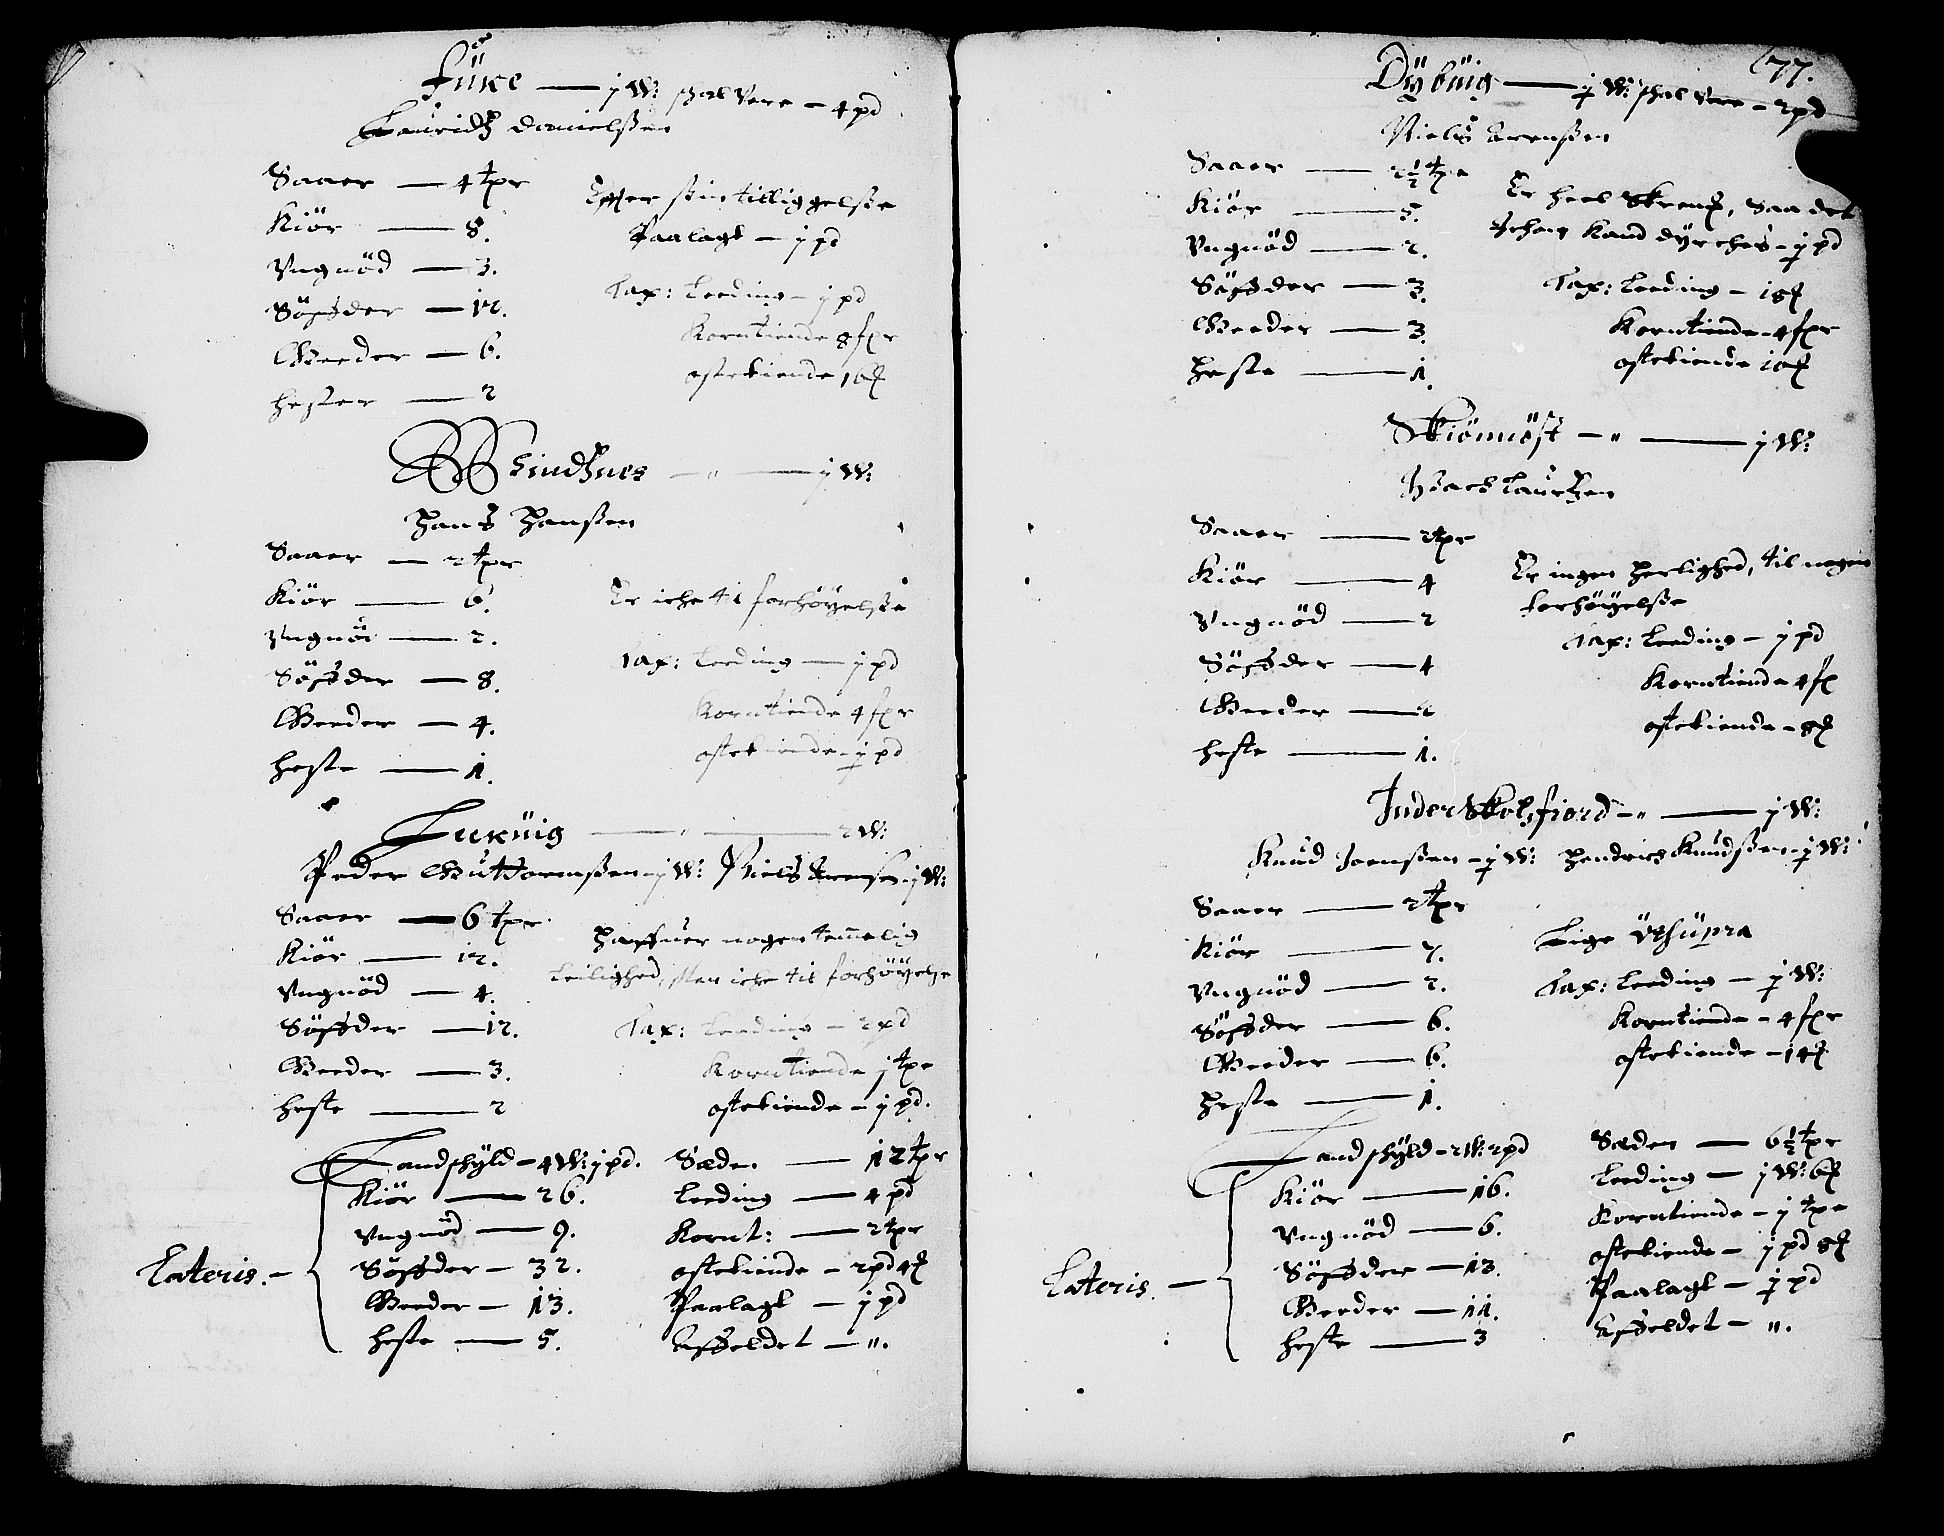 Fiixe — j W: skal Vere — 4 pd
Lauridtz Danielssen
Saaer — 4 tpr
Kiör — 8.
Vngnöd — 3.
Söffder — 12.
Geeder — 6.
hester — 2
Effter ssin tilliggelsse
Paalagt — j pd
Tax: Leeding — j pd
Korntiende 8 sp r
ostetiende 16 ℔
Windtznes — " — j W:
Hans Hanssen
Saaer — 2 tpr
Kiör — 6.
Vngnöd — 2.
Söffder — 8.
Geeder — 4.
heste — 1.
Er iche til forhöyelsse
Tax: Leeding — j pd
Korntiende 4 sp r
ostetiende — j pd
Luxüig — " — 2 W:
Peder Guttormssen — j W: Niels Arensen j W:
Saaer — 6 tpr
Kiör — 12.
Vngnöd — 4.
Söffder — 12.
Geeder — 3.
heste — 2
Haffuer nogen temelig
Leilighed, Men iche til forhöyelse
Tax: Leeding — 2 pd
Korntiende j tpe
ostetiende — j pd.
Lateris. —
Landskyld — 4 W: j pd.
Kiör — 26.
Vngnöd — 9.
Söffder — 32.
Geeder — 13.
heste — 5.
Sæden — 12 tpr
Leeding — 4 pd
Kornt: — 2 tpr
ostetiende — 2 pd 4 ℔
Paalagt — j pd
Affeldet — ".
177.
Dÿbüig — j W: skal Vere — 2 pd
Niels Arenssen
Saaer — 2½ tpe
Kiör — 5.
Vngnöd — 2.
Söffder — 3.
Geeder — 3.
Heste — 1.
Er heel Skrent, Saa det
Ichon Kand dyrches — j pd
Tax: Leeding — 18 ℔
Korntiende — 4 sp r
ostetiende 10 ℔
Skiönnöst — " — j W:
Isach Lauritzen
Saaer — 2 tpr
Kiör — 4
Vngnöd — 2
Söffder — 4
Geeder — 2
heste — 1.
Er ingen Herlighed, til nogen
forhöyelsse
Tax: Leeding — j pd
Korntiende 4 sp
ostetiende — 8 ℔
Inder Skolsfiord — " — j W:
Knud Joenssen — j W: Hendrich Knudssen — j W:
Saaer — 2 tpr
Kiör — 7.
Vngnöd — 2.
Söffder — 6.
Geeder — 6.
Heste — 1.
Lige Vtsüpra
Tax: Leeding — j W:
Korntiende — 4 sp r
ostetiende — 14 ℔
Lateris. —
Landskyld — 2 W: 2 pd
Kiör — 16.
Vngnöd — 6.
Söffder — 13.
Geeder — 11.
heste — 3
Sæden — 6½ tpr
Leeding — j W: 6 ℔
Korntiende — j tpe
ostetiende — j pd 8 ℔
Paalagt — j pd
Affeldet — ".